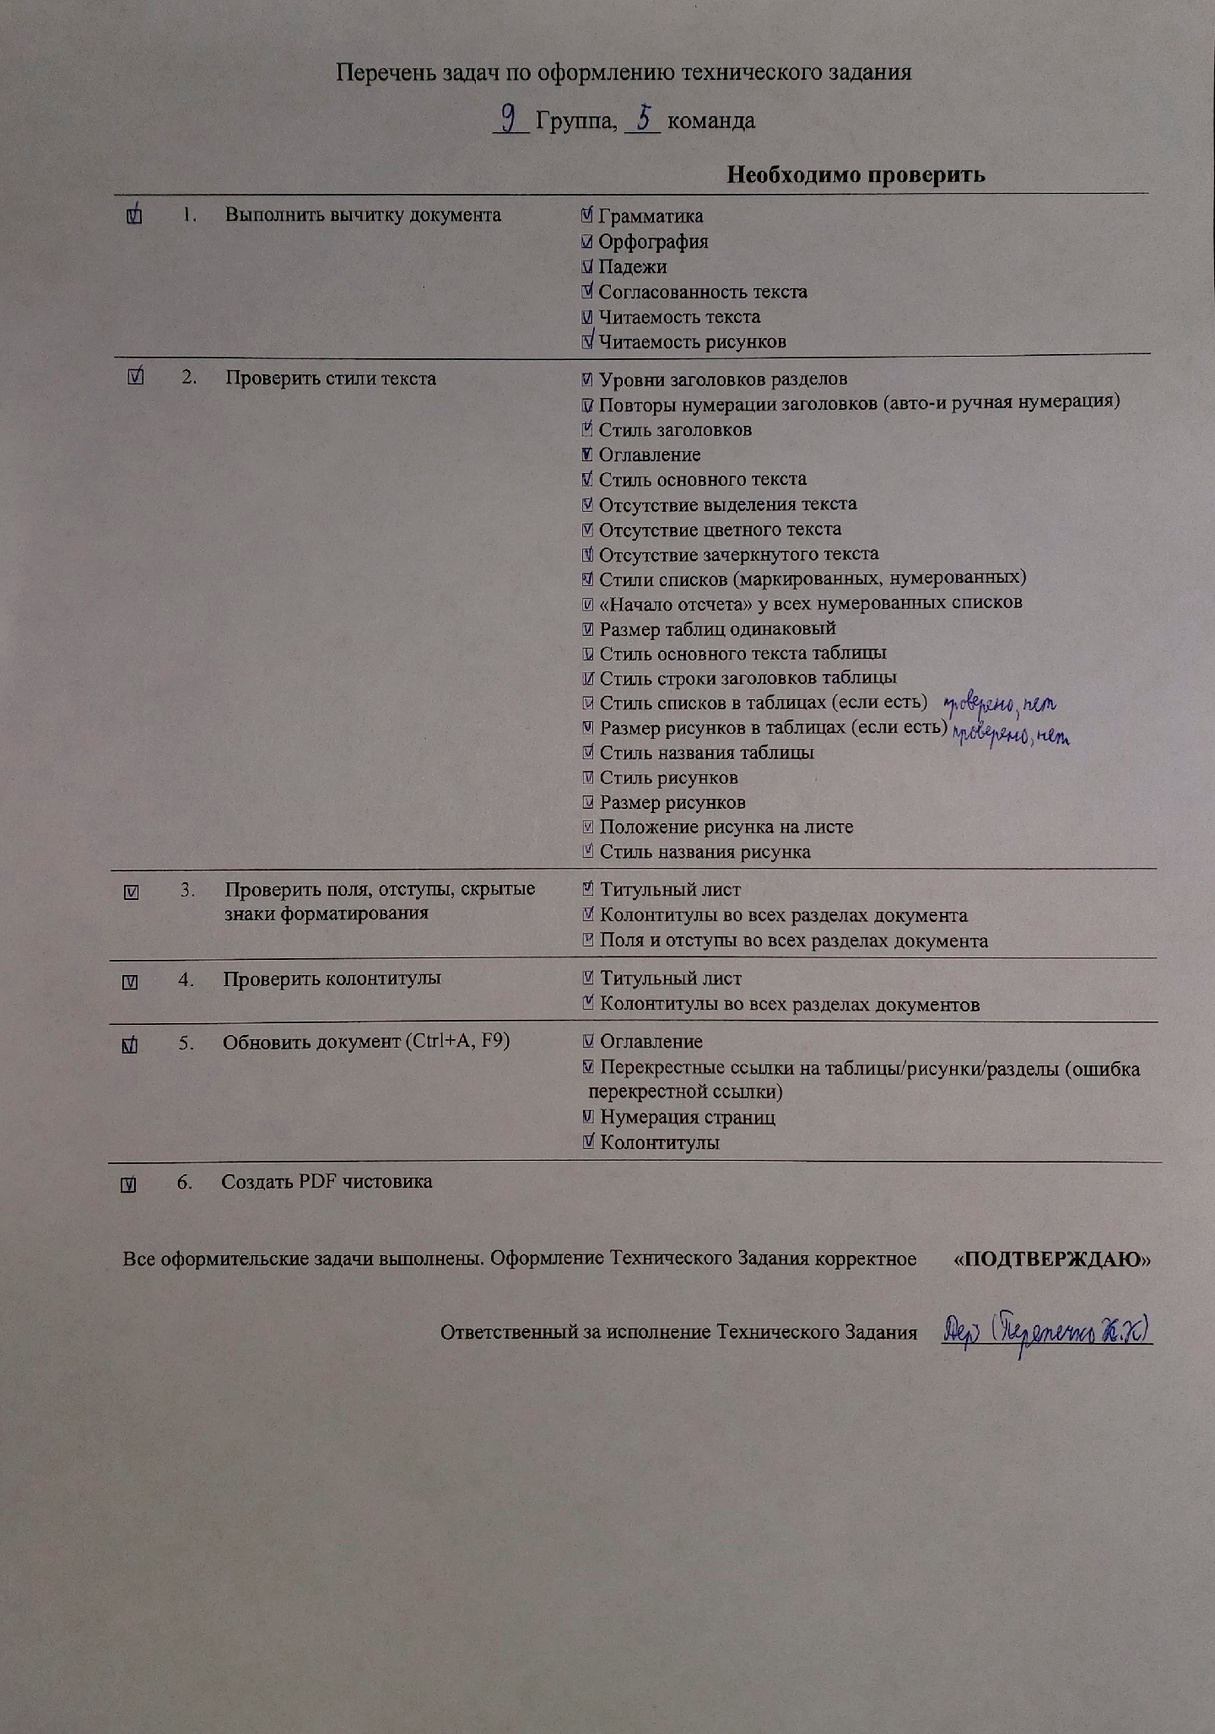 Перечень задач по оформлению технического задания
9 Группа, 5 команда
Необходимо проверить
☑ 1. Выполнить вычитку документа
☑ Грамматика
☑ Орфография
☑ Падежи
☑ Согласованность текста
☑ Читаемость текста
☑ Читаемость рисунков
☑ 2. Проверить стили текста
☑ Уровни заголовков разделов
☑ Повторы нумерации заголовков (авто-и ручная нумерация)
☑ Стиль заголовков
☑ Оглавление
☑ Стиль основного текста
☑ Отсутствие выделения текста
☑ Отсутствие цветного текста
☑ Отсутствие зачеркнутого текста
☑ Стили списков (маркированных, нумерованных)
☑ «Начало отсчета» у всех нумерованных списков
☑ Размер таблиц одинаковый
☑ Стиль основного текста таблицы
☑ Стиль строки заголовков таблицы
☑ Стиль списков в таблицах (если есть) проверено, нет
☑ Размер рисунков в таблицах (если есть) проверено, нет
☑ Стиль названия таблицы
☑ Стиль рисунков
☑ Размер рисунков
☑ Положение рисунка на листе
☑ Стиль названия рисунка
☑ 3. Проверить поля, отступы, скрытые
знаки форматирования
☑ Титульный лист
☑ Колонтитулы во всех разделах документа
☑ Поля и отступы во всех разделах документа
☑ 4. Проверить колонтитулы
☑ Титульный лист
☑ Колонтитулы во всех разделах документов
☑ 5. Обновить документ (Ctrl+A, F9)
☑ Оглавление
☑ Перекрестные ссылки на таблицы/рисунки/разделы (ошибка
перекрестной ссылки)
☑ Нумерация страниц
☑ Колонтитулы
☑ 6. Создать PDF чистовика
Все оформительские задачи выполнены. Оформление Технического Задания корректное «ПОДТВЕРЖДАЮ»
Ответственный за исполнение Технического Задания (Перепечко К.К)